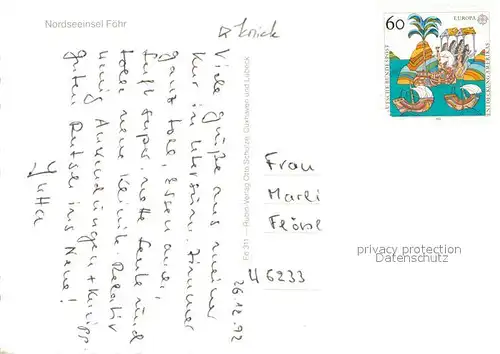 Nordseeinsel Föhr
Knick
Viele Grüße aus meiner
Kur in Utersum. Zimmer
ganz toll, Essen auch,
Luft super, nette Leute und
tolle neue Klinik. Relativ
wenig Anwendungen + Kneipp.
Guten Rutsch ins Neue!
Jutta
26.12.92
Fe 311 — Rubin Verlag Otto Schulze, Cuxhaven und Lübeck
60
EUROPA
DEUTSCHE BUNDESPOST
ENTDECKUNG AMERIKAS
Frau
Marli
46233
privacy protection
Datenschutz